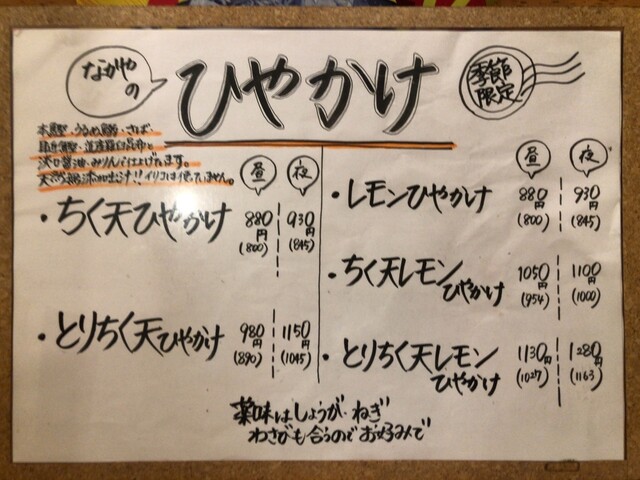 ながやの
ひやかけ
季節
限定
本鰹・うるめ鰯・さば・
羅臼昆布と
淡口醤油・みりんで仕上げてます。
天然無添加出汁!!イリコは使っていません。
昼 夜
・ちく天ひやかけ 880円(800) 930円(845)
・とりちく天ひやかけ 980円(890) 1150円(1045)
昼 夜
・レモンひやかけ 880円(800) 930円(845)
・ちく天レモンひやかけ 1050円(954) 1100円(1000)
・とりちく天レモンひやかけ 1130円(1027) 1280円(1163)
薬味はしょうが・ねぎ
わさびも合うのでお好みで